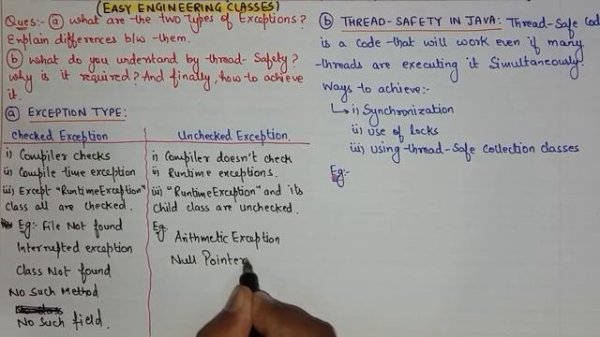 (EASY ENGINEERING CLASSES)
Ques:- (a) what are the two types of Exceptions?
Explain differences b/w them.
(b) what do you understand by thread-Safety?
why is it required? And finally, how to achieve
it.
(a) EXCEPTION TYPE:
Checked Exception
i) Compiler checks
ii) Compile time exception
iii) Except "RuntimeException"
class all are checked.
Eg:- File Not found
Interrupted exception
Class Not found
No Such Method
No Such field.
Unchecked Exception.
i) Compiler doesn't check
ii) Runtime exceptions.
iii) "RuntimeException" and its
Child class are unchecked.
Eg:
Arithmetic Exception
Null Pointer
(b) THREAD-SAFETY IN JAVA: Thread-Safe Cod
is a code that will work even if many
threads are executing it Simultaneously.
Ways to achieve:-
i) Synchronization
ii) use of locks
iii) using thread-Safe collection classes
Eg:-